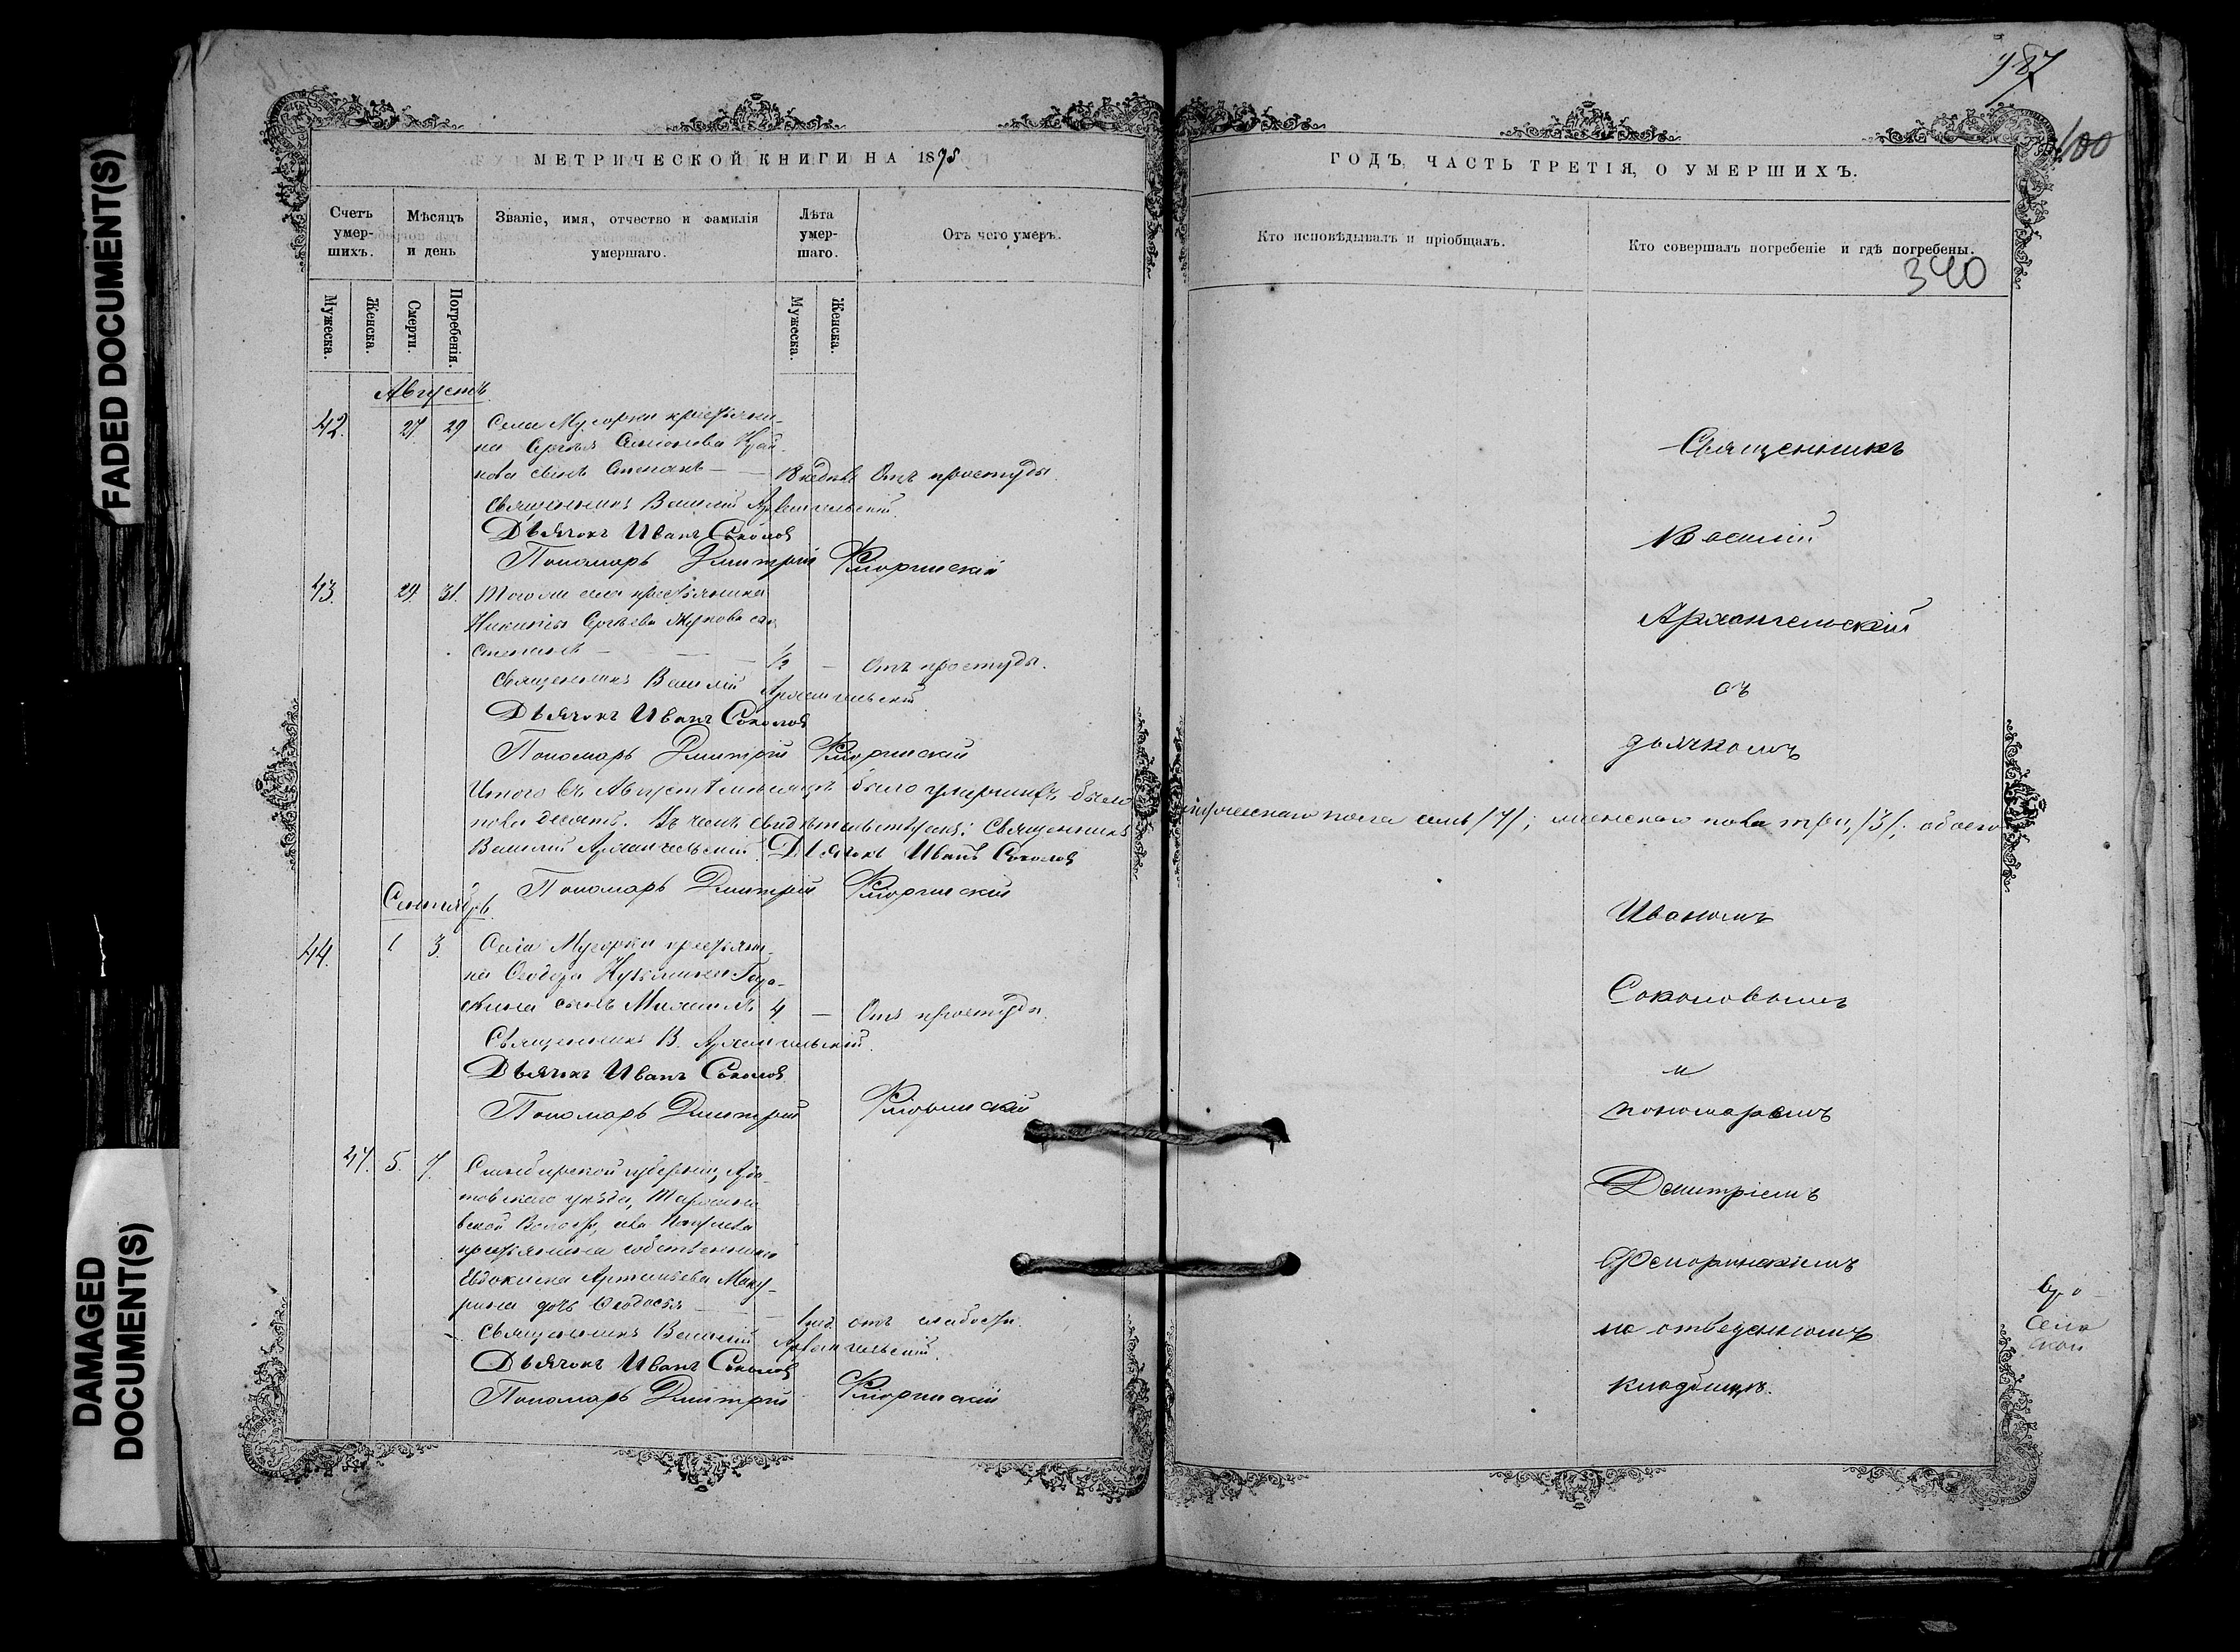 FADED DOCUMENT(S)
DAMAGED
DOCUMENT(S)
МЕТРИЧЕСКОЙ КНИГИ НА 1875
Счетъ умер-шихъ.
Мѣсяцъ и день
Званіе, имя, отчество и фамилія умершаго.
Лѣта умер-шаго.
Отъ чего умеръ.
Мужеска.
Женска.
Смерти.
Погребенія.
Мужеска.
Женска.
Августъ
42. 27. 29 Села Мусорки крестьяни-
на Сергѣя Симонова
сынъ Степанъ — — 18 недѣль Отъ простуды.
Священникъ Василій Архангельскій.
Дьячокъ Иванъ Соколов
Пономарь Дмитрій Флоринскій
43. 29. 31. Того же села крестьянина
Никиты Сергѣева Жукова сынъ
Степанъ — — — 1/2 — Отъ простуды.
Священникъ Василій Архангельскій.
Дьячокъ Иванъ Соколов
Пономарь Дмитрій Флоринскій
Итого въ Августѣ мѣсяцѣ было умершихъ было мужескаго пола семь /7/; женскаго пола три, /3/; обоего
пола десять. Въ чемъ свидѣтельствуемъ: Священникъ
Василій Архангельскій. Дьячокъ Иванъ Соколов
Пономарь Дмитрій Флоринскій
Сентябрь.
44. 1 3. Села Мусорки крестьяни-
на Ѳеодора
сынъ Михаилъ 4 — Отъ простуды.
Священникъ В. Архангельскій.
Дьячокъ Иванъ Соколов
Пономарь Дмитрій Флоринскій
47. 5. 7. Симбирской губерніи, Арда-
товскаго уѣзда,
Волости, села
крестьянина собственника
Евдокима Артемьева Маку-
рина дочь Ѳеодосья — — 1 нед. отъ слабости.
Священникъ Василій Архангельскій.
Дьячокъ Иванъ Соколов
Пономарь Дмитрій Флоринскій
187
100
ГОДЪ, ЧАСТЬ ТРЕТІЯ, О УМЕРШИХЪ.
Кто исповѣдывалъ и пріобщалъ.
Кто совершалъ погребеніе и гдѣ погребены.
340
Священникъ
Василій
Архангельскій
съ
дьячкомъ
Иваномъ
Соколовымъ
и
пономаремъ
Димитріемъ
Флоринскимъ
на отведенномъ
кладбищѣ.